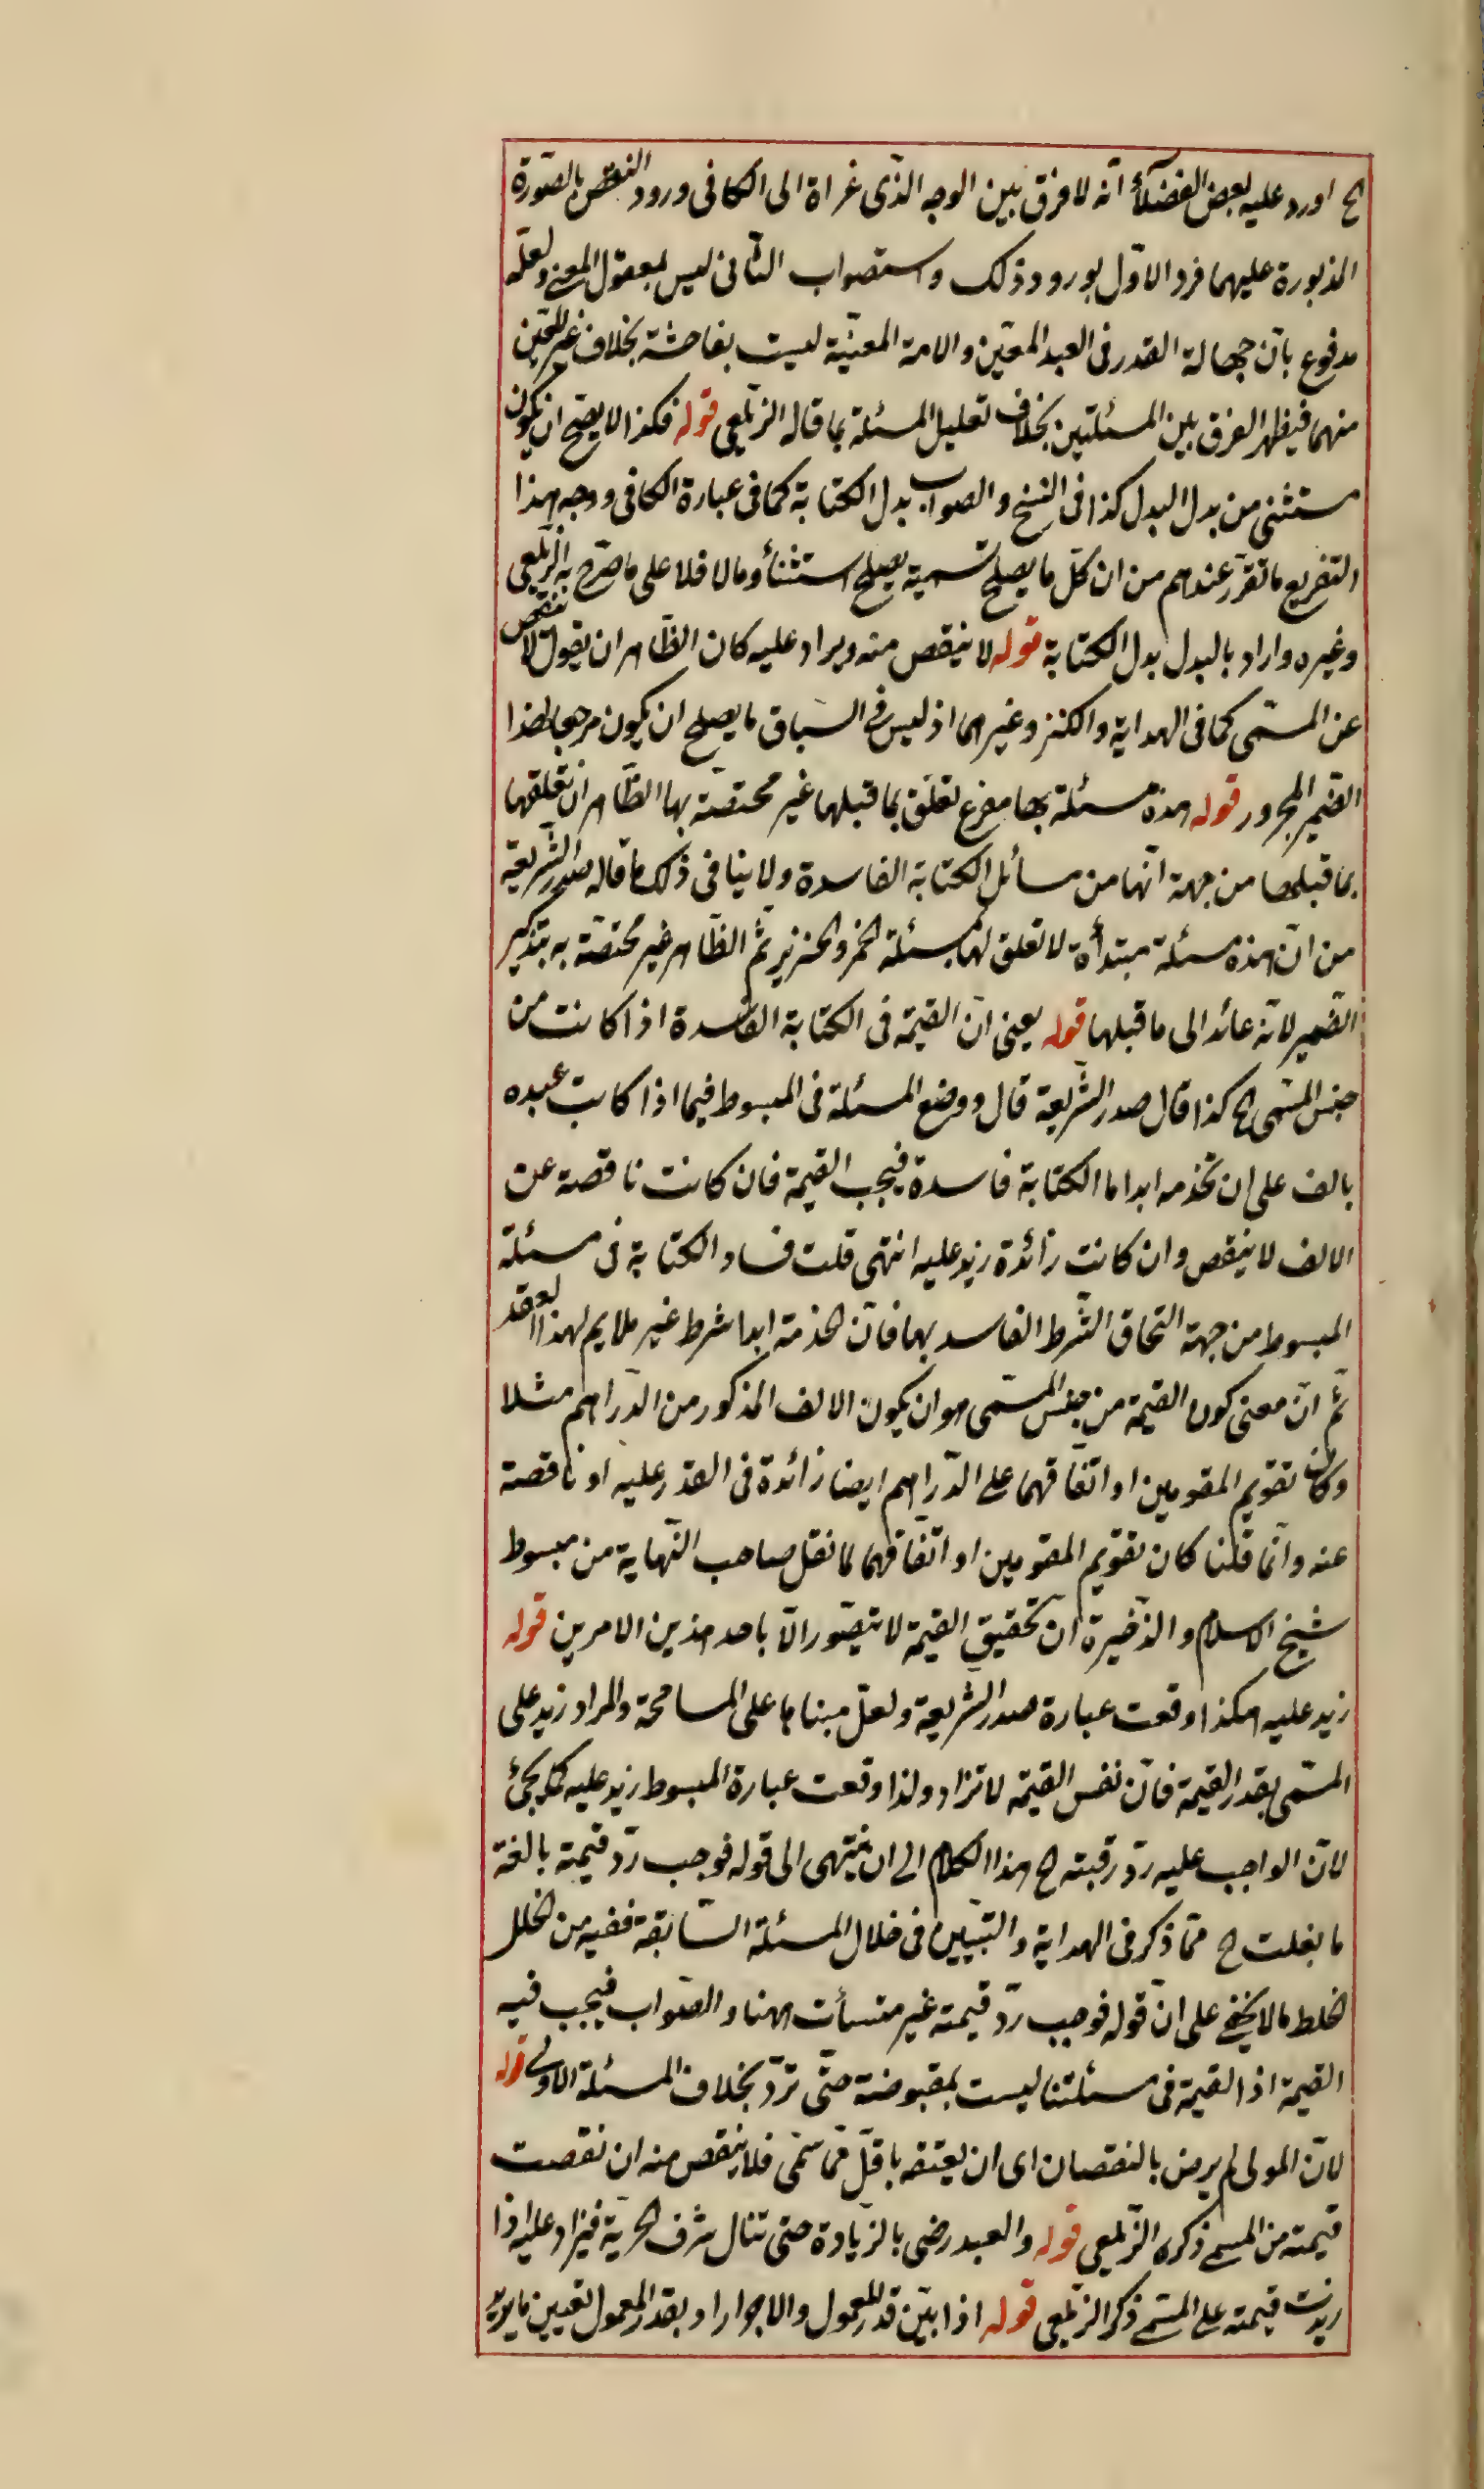 الخ اورد عليه بعض الفضلآء انّه لا فرق بين الوجه الذّى عزاة الى الكافى وورود النقض بالصّورة
المذبورة عليهما فرد الاوّل بورود ذلك واستصواب الثّانى ليس بمعقول المعنى ولعلّه
مدفوع بانّ جهالة القدر فى العبد المعيّن والامة المعيّنة ليست بفاحشة بخلاف غير المعيّن
منهما فيظهر الفرق بين المسئلتين بخلاف تعليل المسئلة بما قاله الزّيلعى قوله فكذا لا يصحّ ان يكون
مستثنى من بدل البدل كذا فى النسخ والصواب بدل الكتابة كما فى عبارة الكافى ووجه هذا
التفريع ما تقرّر عندهم من ان كلّ ما يصلح تسمية يصلح استثنأ وما لا فلا على ما صرّح به الزّيلعى
وغيره واراد بالبدل بدل الكتابة قوله لا ينقص منه ويزاد عليه كان الظّاهر ان يقول لا تنقص
عن المسّمى كما فى الهداية والكنز وغيرهما اذ ليس فى السّباق ما يصلح ان يكون مرجعا لهذا
الضّمير المجرور قوله هذه مسئلة بها مفرع تعلّق بما قبلها غير مختصّة بها الظّاهر ان تعلقها
بما قبلها من جهة انّها من مسائل الكتابة الفاسدة ولا ينافى ذلك ما قاله صدر الشّريعة
من انّ هذه مسئلة مبتدأة لا تعلق لها بمسئلة الخمر والخنزير ثمّ الظّاهر غير مختصّة به بتذكير
الضّمير لانّه عائد الى ما قبلها قوله يعنى انّ القيمة فى الكتابة الفاسدة اذا كانت من
جنس المسّمى الخ كذا قال صدر الشّريعة قال ووضع المسئلة فى المبسوط فيما اذا كاتب عبده
بالف على ان تخدمه ابدا ما الكتابة فاسدة فيجب القيمة فان كانت ناقصة عن
الالف لا ينقص وان كانت زائدة زيد عليه انتهى قلت فساد الكتابة فى مسئلة
المبسوط من جهة التحاق الشّرط الفاسد بها فانّ الخدمة ابدا شرط غير ملايم لهذا العقد
ثمّ انّ معنى كون القيمة من جنس المسّمى هو ان يكون الالف المذكور من الدّراهم مثلا
وكان تقويم المقومين او اتّفاقهما على الدّراهم ايضا زائدة فى القدر عليه او ناقصة
عنه وانّما قلنا كان تقويم المقومين او اتّفاقهما لما نقل صاحب النّهاية من مبسوط
شيخ الاسلام والذّخيرة ان تحقيق القيمة لا يتصّور الّا باحد هذين الامرين قوله
زيد عليه هكذا وقعت عبارة صدر الشّريعة ولعلّ مبناها على المسامحة والمراد زيد على
المسّمى بقدر القيمة فانّ نفس القيمة لا تزاد ولذا وقعت عبارة المبسوط زيد عليه كما يجئ
لانّ الواجب عليه ردّ رقبته الخ هذا الكلام الى ان ينتهى الى قوله فوجب ردّ قيمته بالغة
ما بغلت الخ ممّا ذكر فى الهداية والتّبيين فى خلال المسئلة السّابقة ففيه من الخلل
الخلط ما لا يخفى على انّ قوله فوجب ردّ قيمته غير متسأت ههنا والصّواب فيجب فيه
القيمة اذ القيمة فى مسئلتنا ليست بمقبوضة حتّى تردّ بخلاف المسئلة الاولى قوله
لانّ المولى لم يرض بالنقصان اى ان يعتقه باقلّ ممّا سمّى فلا ينقص منه ان نقصت
قيمته من المسمى ذكره الزّيلعى قوله والعبد رضى بالزّيادة حتى تنال شرف الحرّية فيزاد عليه اذا
زيدت قيمته على المسّمى ذكر الزّيلعى قوله اذا بيّن قدر المعمول والاجوار او بقدر المعمول تعيين ما يرتد